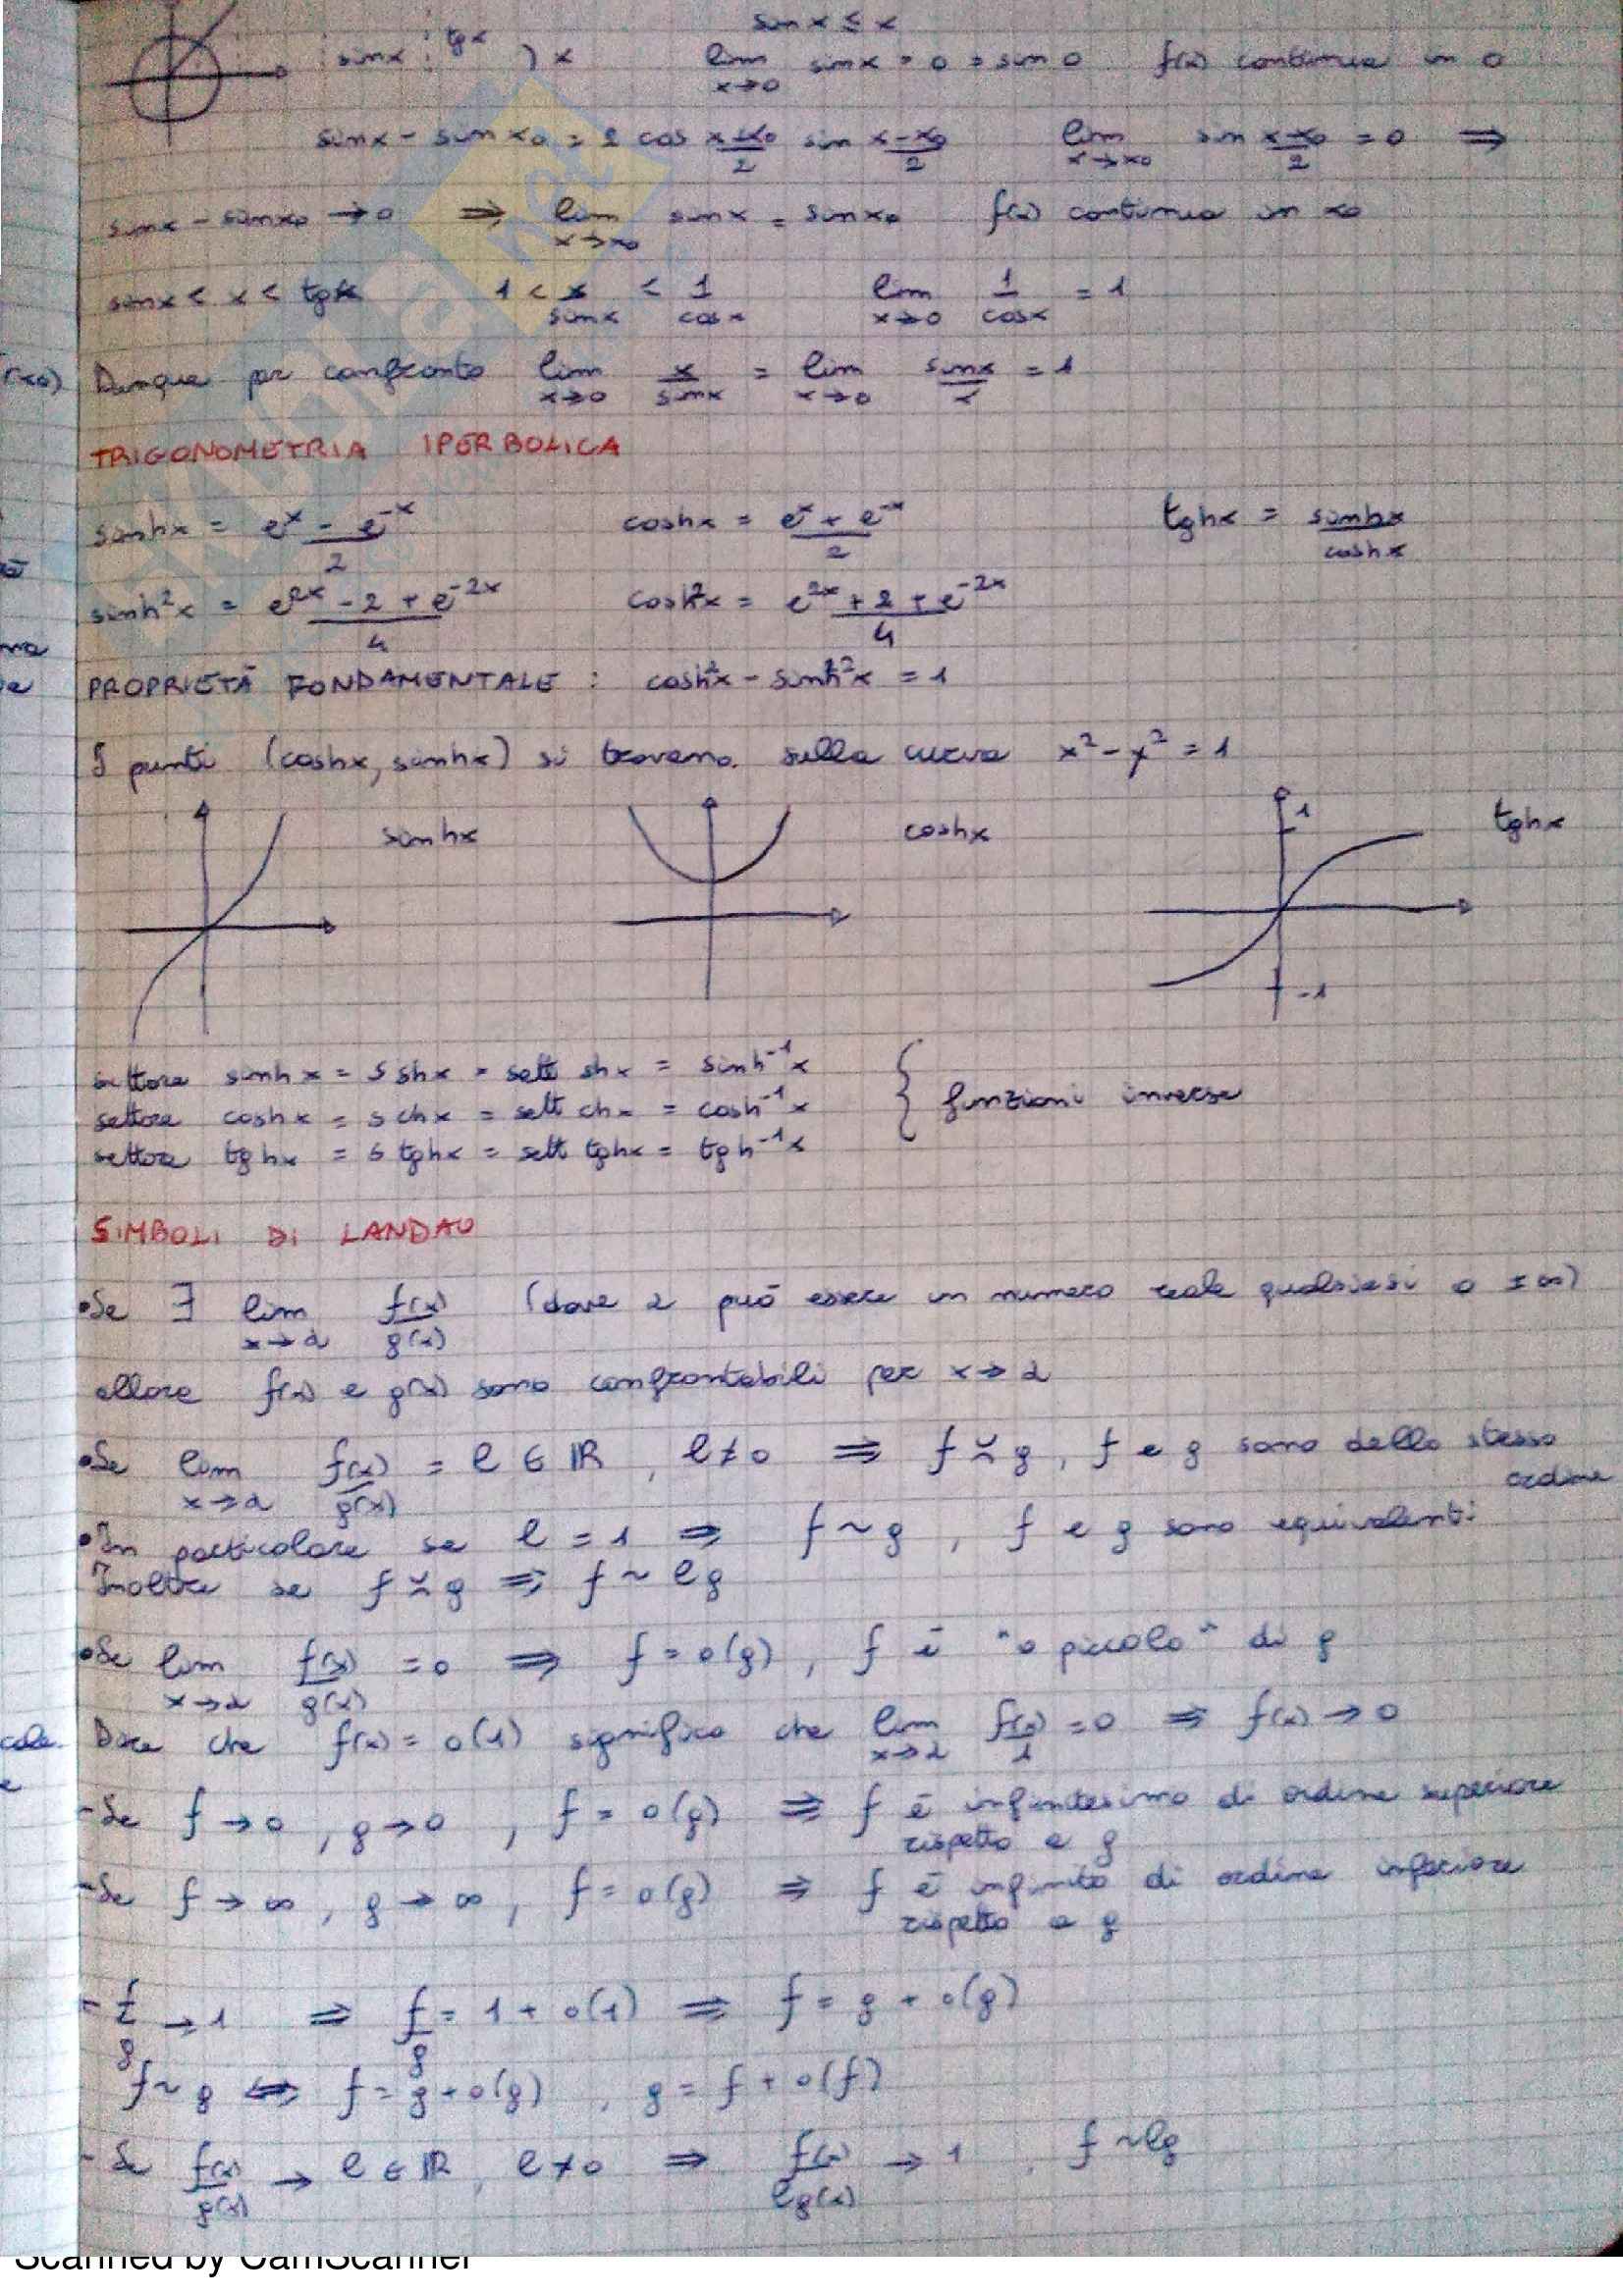 sin x ≤ x
sin x tg x ) x lim x→0 sin x = 0 = sin 0 f(x) continua in 0
sin x - sin x0 = 2 cos (x+x0)/2 sin (x-x0)/2 lim x→x0 sin (x-x0)/2 = 0 ⇒
sin x - sin x0 → 0 ⇒ lim x→x0 sin x = sin x0 f(x) continua in x0
sin x < x < tg x 1 < x/sin x < 1/cos x lim x→0 1/cos x = 1
Dunque per confronto lim x→0 x/sin x = lim x→0 sin x/x = 1
TRIGONOMETRIA IPERBOLICA
sinh x = (e^x - e^-x)/2 cosh x = (e^x + e^-x)/2 tgh x = sinh x/cosh x
sinh²x = (e^2x - 2 + e^-2x)/4 cosh²x = (e^2x + 2 + e^-2x)/4
PROPRIETÀ FONDAMENTALE : cosh²x - sinh²x = 1
I punti (cosh x, sinh x) si trovano sulla curva x² - y² = 1
sinh x cosh x 1 tgh x
-1
settore sinh x = s sh x = sett sh x = sinh⁻¹ x
settore cosh x = s ch x = sett ch x = cosh⁻¹ x { funzioni inverse
settore tgh x = s tgh x = sett tgh x = tgh⁻¹ x
SIMBOLI DI LANDAU
•Se ∃ lim x→a f(x)/g(x) (dove a può essere un numero reale qualsiasi o ±∞)
allora f(x) e g(x) sono confrontabili per x→a
•Se lim x→a f(x)/g(x) = l ∈ ℝ, l≠0 ⇒ f ≍ g, f e g sono dello stesso ordine
•In particolare se l = 1 ⇒ f ~ g, f e g sono equivalenti
Inoltre se f ≍ g ⇒ f ~ lg
•Se lim x→a f(x)/g(x) = 0 ⇒ f = o(g), f è "o piccolo" di g
Dire che f(x) = o(1) significa che lim x→a f(x)/1 = 0 ⇒ f(x) → 0
-Se f→0, g→0, f = o(g) ⇒ f è infinitesimo di ordine superiore rispetto a g
-Se f→∞, g→∞, f = o(g) ⇒ f è infinito di ordine inferiore rispetto a g
- f/g → 1 ⇒ f/g = 1 + o(1) ⇒ f = g + o(g)
f ~ g ⇔ f = g + o(g), g = f + o(f)
- Se f(x)/g(x) → l ∈ ℝ, l≠0 ⇒ f(x)/lg(x) → 1, f ~ lg
Scanned by CamScanner